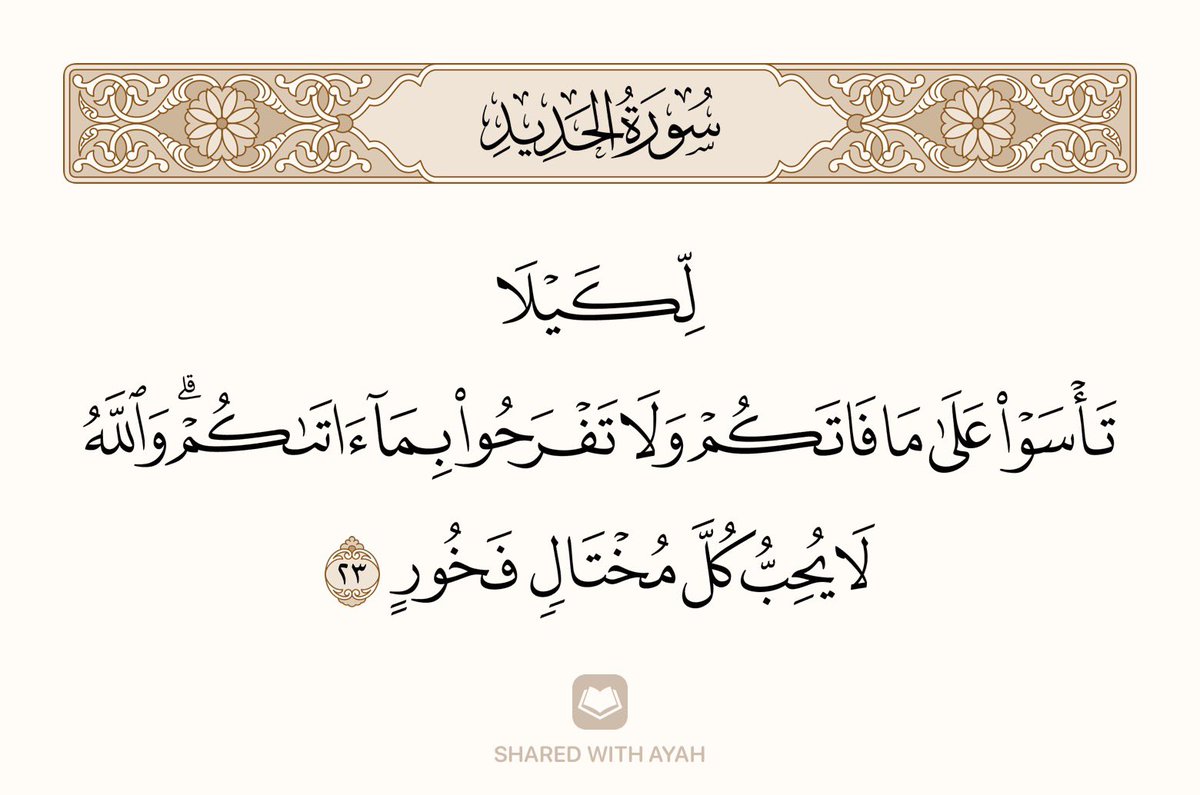 سُورَةُ الحَدِيدِ
لِّكَيْلَا
تَأْسَوْا۟ عَلَىٰ مَا فَاتَكُمْ وَلَا تَفْرَحُوا۟ بِمَآ ءَاتَىٰكُمْ ۗ وَٱللَّهُ
لَا يُحِبُّ كُلَّ مُخْتَالٍ فَخُورٍ ٢٣
SHARED WITH AYAH